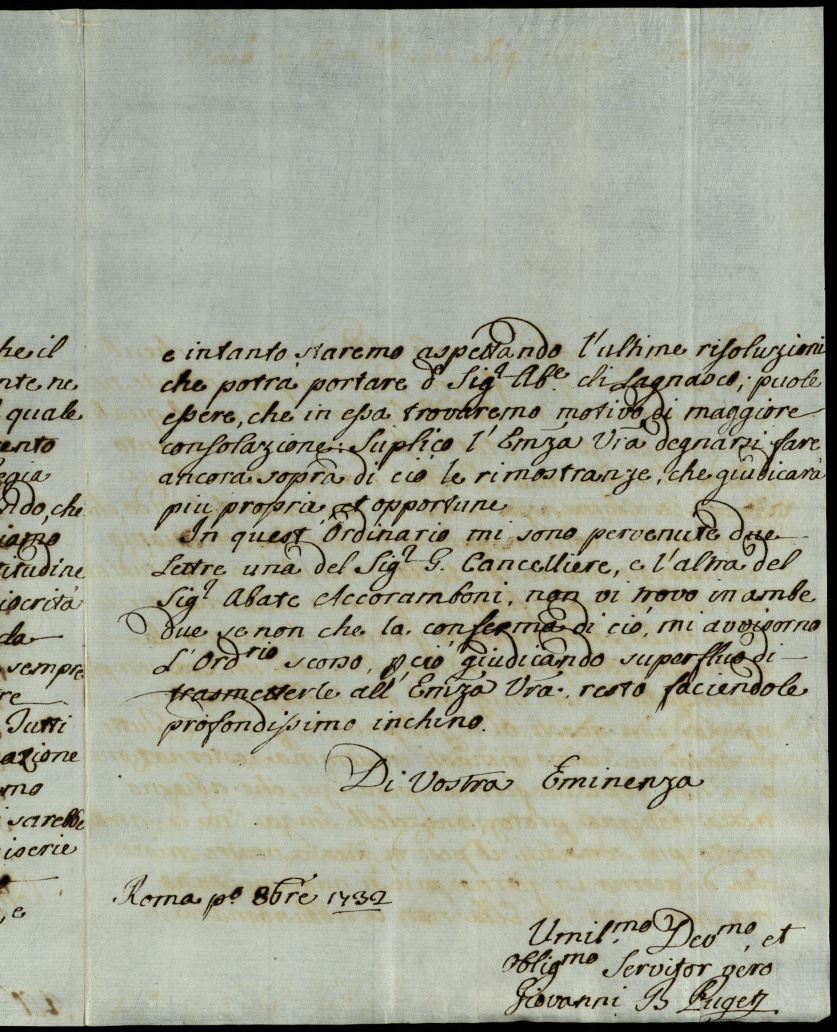 he il
nte ne
l quale
ento
egia
ndo, che
iamo
titudine
iocrità
da
sempre
re
Tutti
azione
mo
i sarebbe
iserie
, e
e intanto staremo aspettando l'ultime risoluzioni
che potrà portare d.º Sig.r Ab.e di Lagnasco; puole
essere, che in essa trovaremo motivo di maggiore
consolazione. Suplico l'Emza Vra degnarsi fare
ancora sopra di ciò le rimostranze, che giudicarà
piu propria et opportune
In quest'Ordinario mi sono pervenute due
Lettre una del Sig.r G. Cancelliere, e l'altra del
Sig.r Abate Accoramboni, non vi trovo in ambe
due se non che la conferma di ciò, mi avvisorno
l'Ord.rio scorso, p ciò giudicando superfluo di
trasmetterle all'Emza Vra. resto faciendole
profondissimo inchino.
Di Vostra Eminenza
Roma p.º 8bre 1732
Umil.mo Dev.mo et
Oblig.mo Servitor vero
Giovanni B Puget